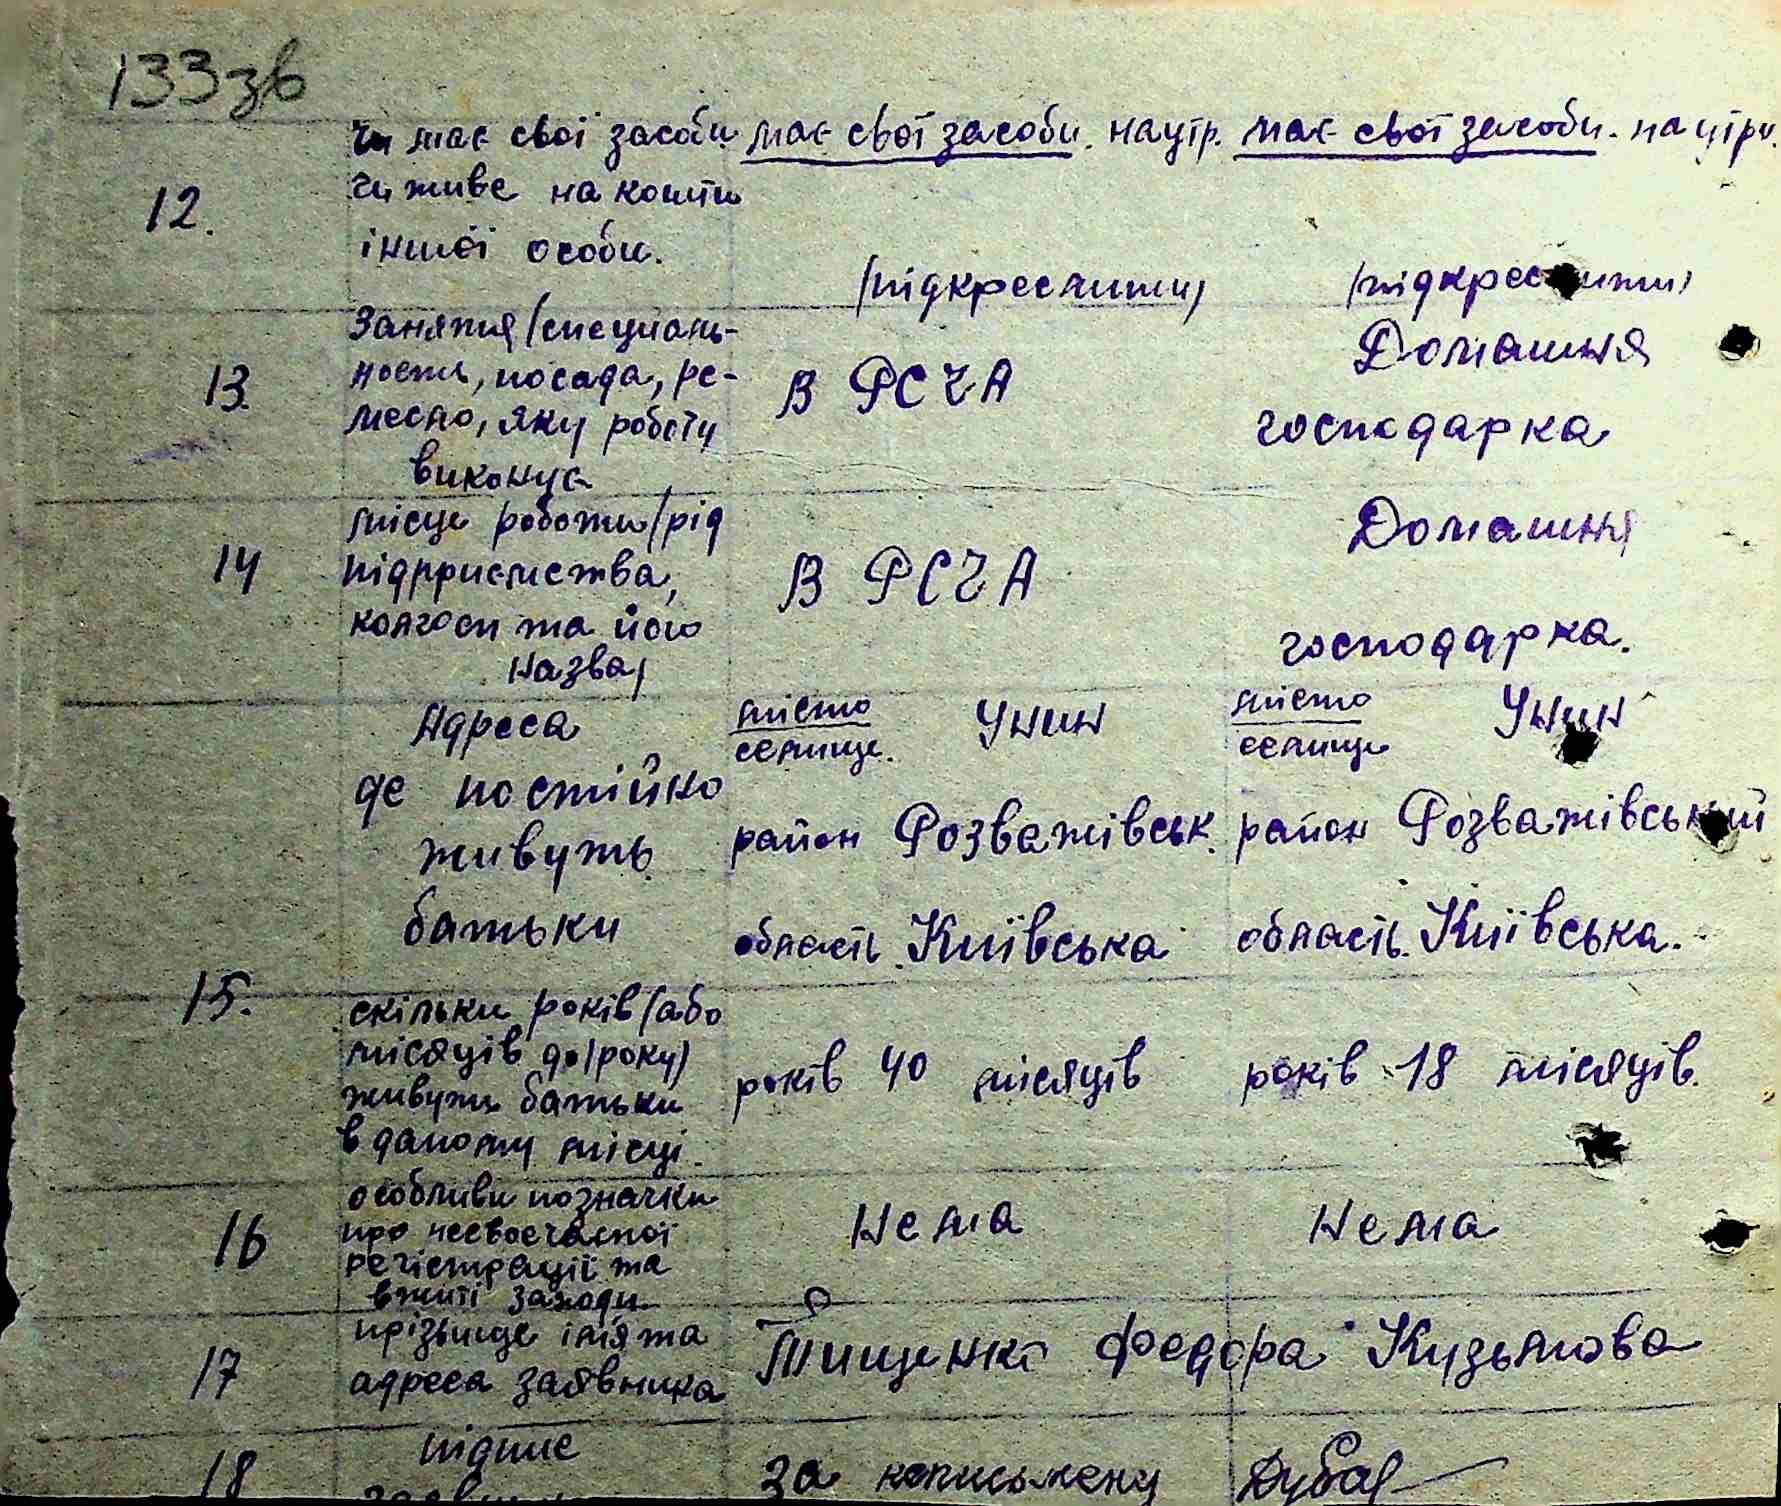 133зв
чи має свої засоби має свої засоби. на утр. має свої засоби. на утри.
12. чи живе на кошти
іншої особи.
/підкреслити/ /підкреслити/
13. Заняття /специаль-
ность, посада, ре-
месло, яку роботу
виконує
В РСЧА
Домашня
господарка
14 місце роботи /рід
підприємства,
колгосп та його
назва/
В РСЧА
Домашня
господарка.
15. Адреса
де постійно
живуть
батьки
місто
селище. Унин
район Розважівськ.
область Київська
місто
селище Унин
район Розважівський
область. Київська.
скільки років /або
місяців до /року/
живуть батьки
в даному місці.
років 40 місяців років 18 місяців.
16 особливи позначки
про несвоєчасної
регістрації та
вжиті заходи
Нема Нема
17 прізвище ім'я та
адреса заявника
Тищенко Федора Кузьмова
18 підпис
за неписьмену Дубов